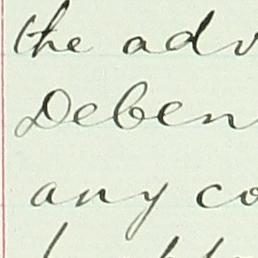 the adv
Deben
any co